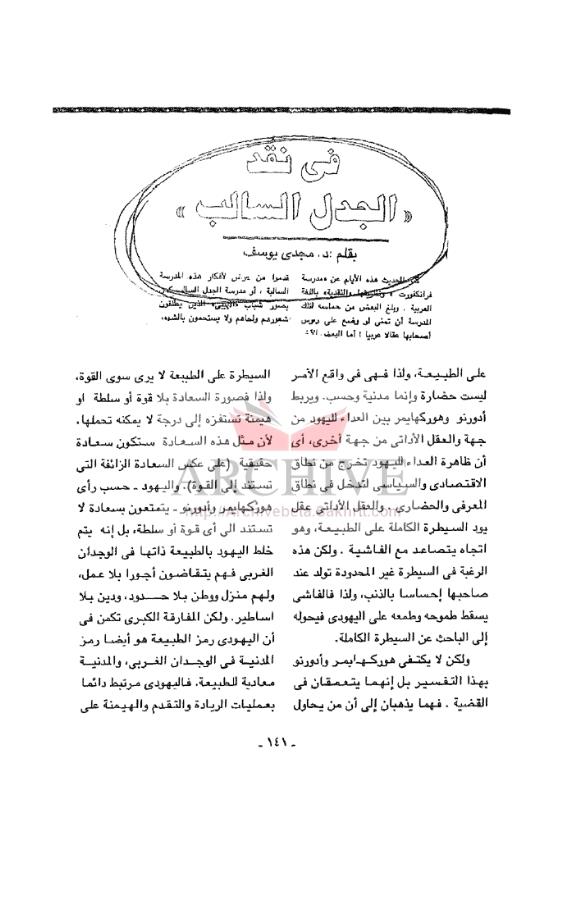 فى نقد
«الجدل السالب»
بقلم : د. مجدى يوسف
الحديث هذه الأيام عن «مدرسة
فرانكفورت» ونظريتها «النقدية» باللغة
العربية . وبلغ البعض من حماسه لتلك
المدرسة أن تمنى لو وضع على رءوس
أصحابها عقالا عربيا ! أما البعض
قدموا من عرض لأفكار هذه المدرسة
السالبة ، أو مدرسة الجدل السالب
بصور شباب «الهيبى» الذين يطلقون
شعورهم ولحاهم ولا يستحمون بالشهر.
على الطبيعة، ولذا فهى فى واقع الأمر
ليست حضارة وإنما مدنية وحسب. ويربط
أدورنو وهوركهايمر بين العداء لليهود من
جهة والعقل الأداتى من جهة أخرى، أى
أن ظاهرة العداء لليهود تخرج من نطاق
الاقتصادى والسياسى لتدخل فى نطاق
المعرفى والحضارى.. والعقل الأداتى عقل
يود السيطرة الكاملة على الطبيعة، وهو
اتجاه يتصاعد مع الفاشية . ولكن هذه
الرغبة فى السيطرة غير المحدودة تولد عند
صاحبها إحساسا بالذنب، ولذا فالفاشى
يسقط طموحه وطمعه على اليهودى فيحوله
إلى الباحث عن السيطرة الكاملة.
ولكن لا يكتفى هوركهايمر وأدورنو
بهذا التفسير بل إنهما يتعمقان فى
القضية . فهما يذهبان إلى أن من يحاول
السيطرة على الطبيعة لا يرى سوى القوة،
ولذا فصورة السعادة بلا قوة أو سلطة او
هيمنة تستفزه إلى درجة لا يمكنه تحملها،
لأن مثل هذه السعادة ستكون سعادة
حقيقية (على عكس السعادة الزائفة التى
تستند إلى القوة). واليهود - حسب رأى
هوركهايمر وأدورنو - يتمتعون بسعادة لا
تستند الى أى قوة أو سلطة، بل إنه يتم
خلط اليهود بالطبيعة ذاتها فى الوجدان
الغربى فهم يتقاضون أجورا بلا عمل،
ولهم منزل ووطن بلا حدود، ودين بلا
اساطير. ولكن المفارقة الكبرى تكمن فى
أن اليهودى رمز الطبيعة هو أيضا رمز
المدنية فى الوجدان الغربى، والمدنية
معادية للطبيعة. فاليهودى مرتبط دائما
بعمليات الريادة والتقدم والهيمنة على
ARCHIVE
http://Archivebeta.Sakhrit.com
- ١٤١ -